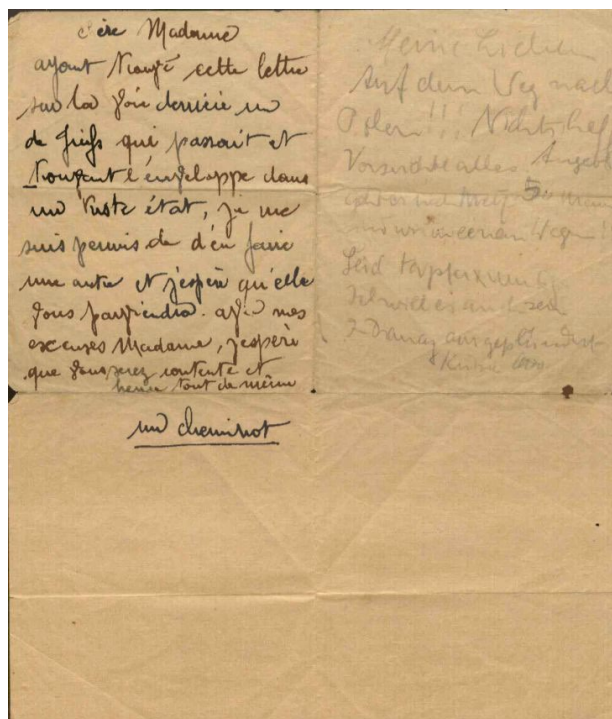 chère Madame
ayant trouvé cette lettre
sur la voie derrière un
de juifs qui passait et
trouvant l'enveloppe dans
un triste état, je me
suis permis de d'en faire
une autre et j'espère qu'elle
vous parviendra. avec mes
excuses Madame, j'espère
que vous serez contente et
heureuse tout de même
un cheminot
Meine Lieben
Auf dem Weg nach
Polen!!! Nichts half
Versuchte alles.
50
Wagen!
Seid tapfer
Ich will es auch sein
In Drancy ausgeplündert